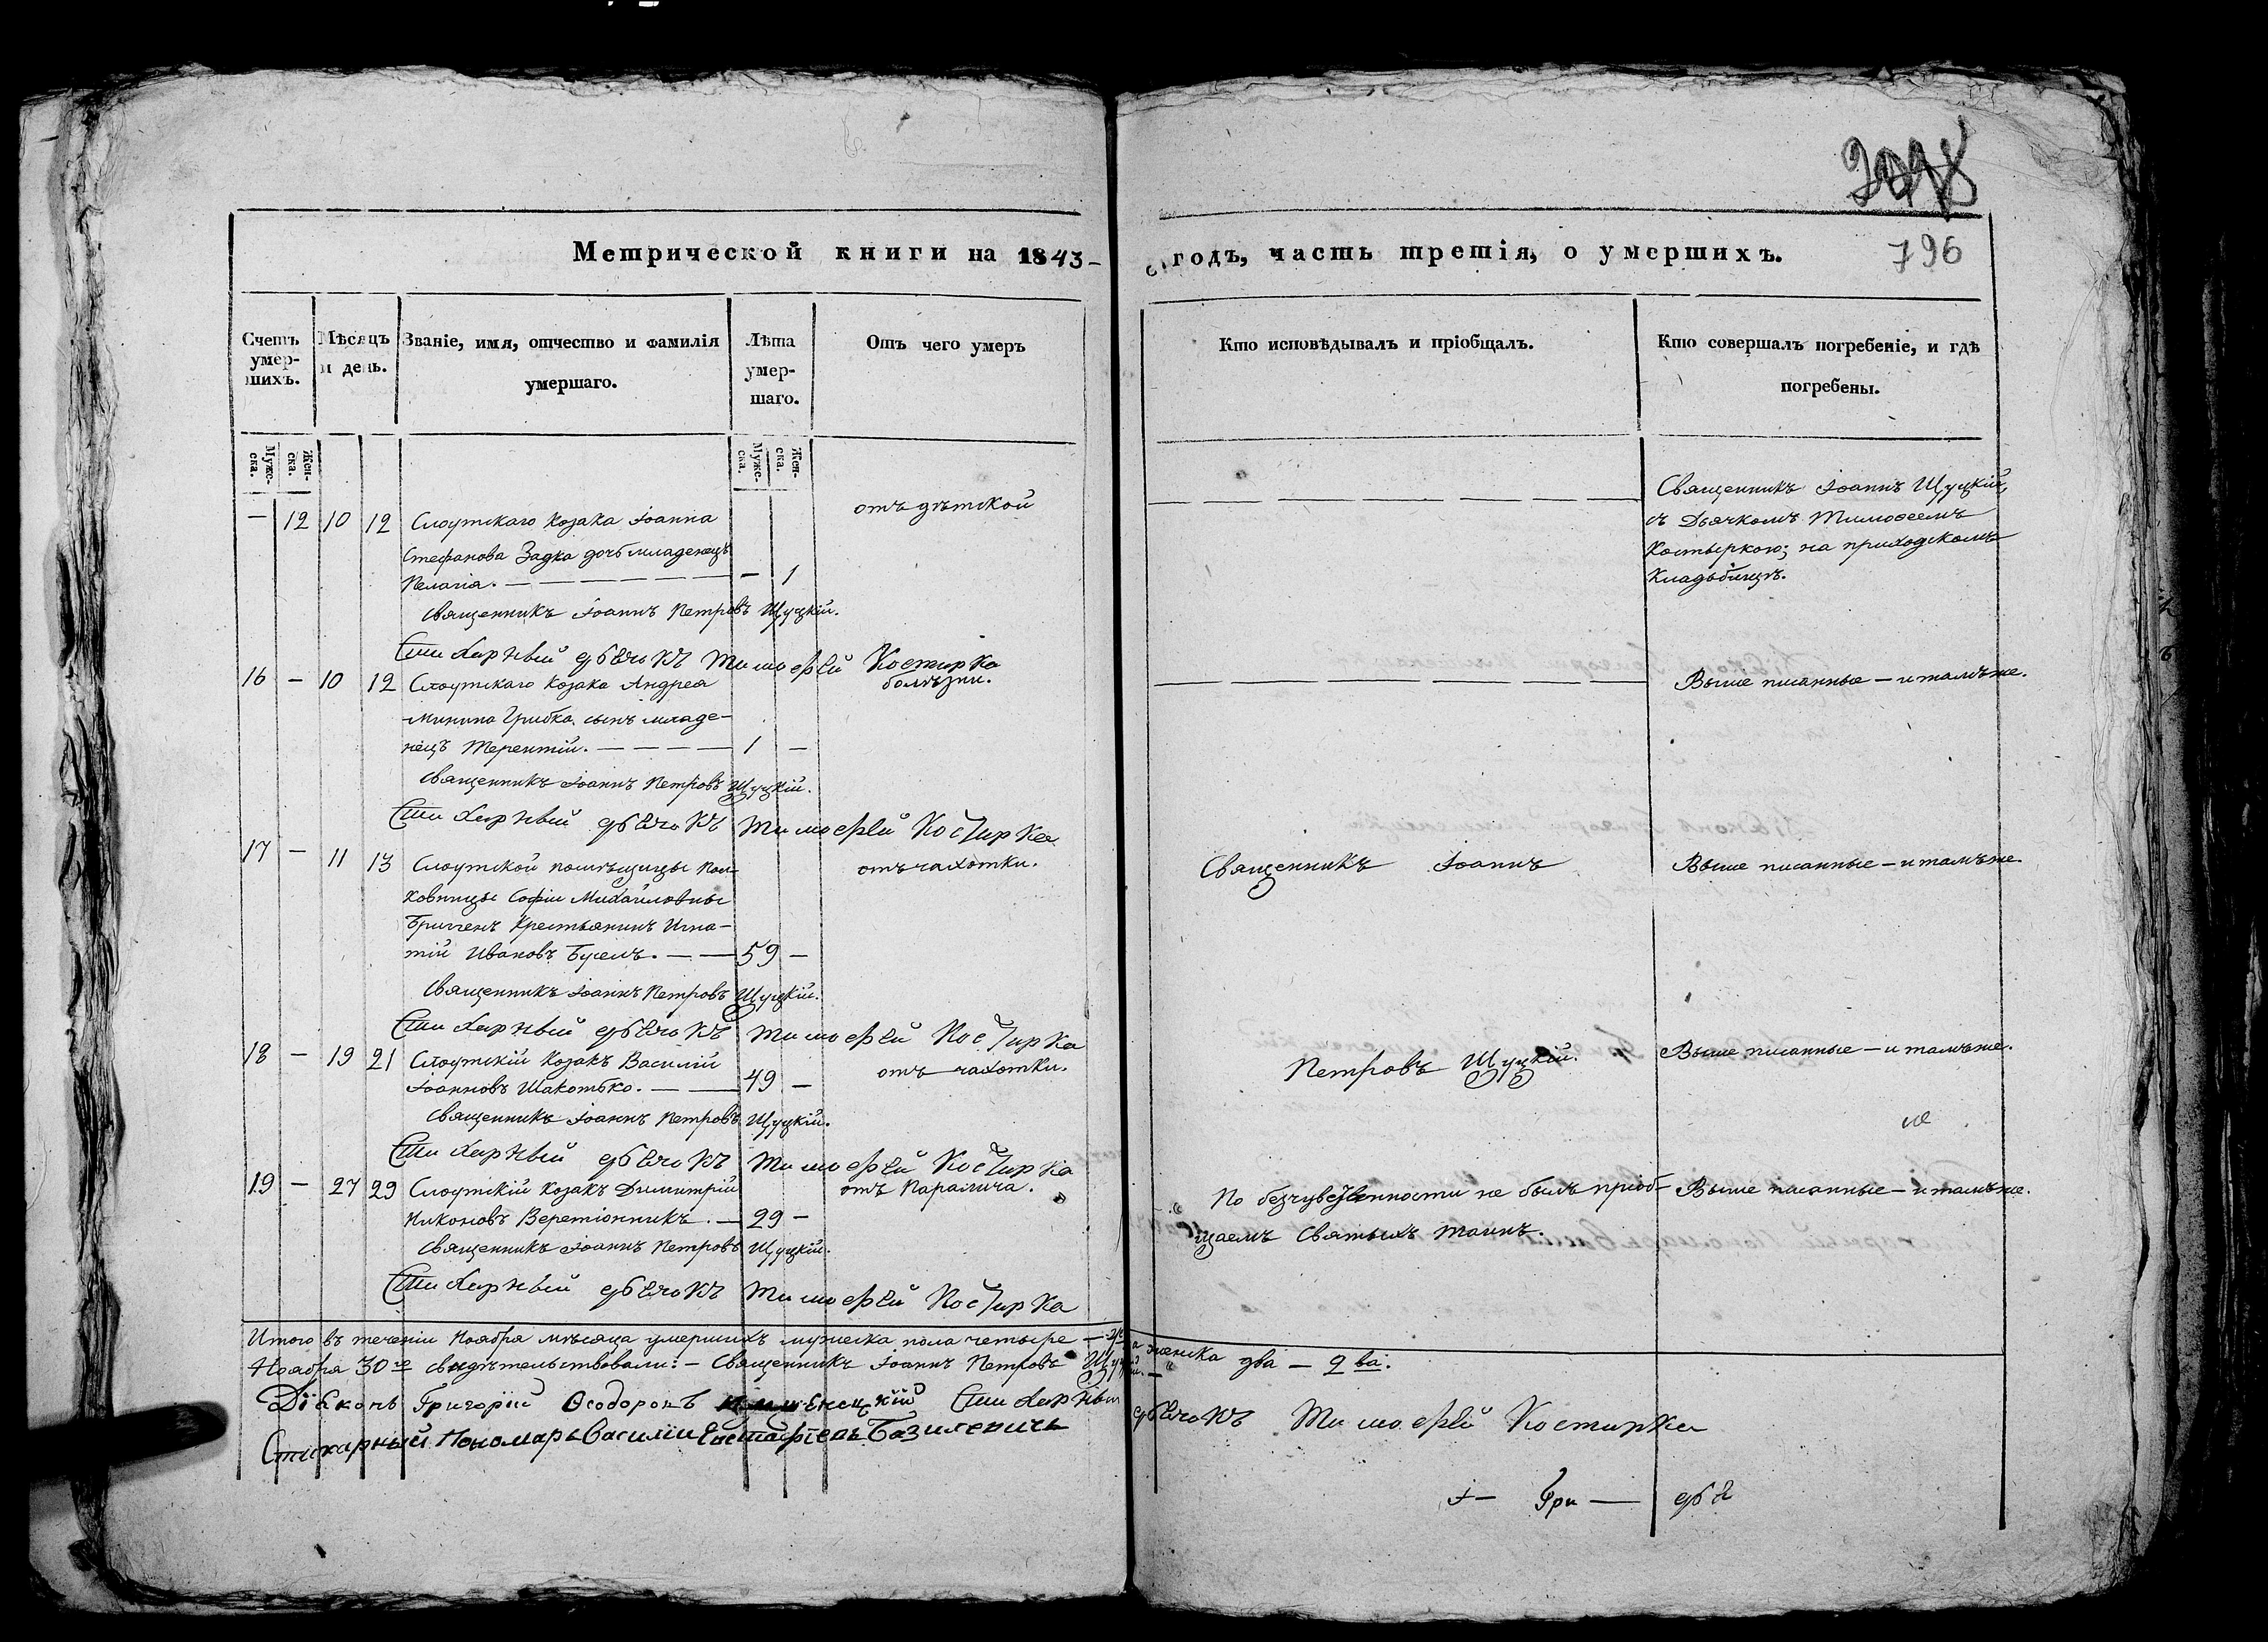 796
Метрической книги на 1843- годъ, часть третія, о умершихъ.
Счетъ умер-шихъ.
Мѣсяцъ и день.
Званіе, имя, отчество и фамилія умершаго.
Лѣта умер-шаго.
Отъ чего умеръ
Кто исповѣдывалъ и пріобщалъ.
Кто совершалъ погребеніе, и гдѣ погребены.
Муже-ска.
Жен-ска.
Муже-ска.
Жен-ска.
— 12 10 12 Слоутскаго козака Іоанна
Стефанова Задка дочь младенецъ
Пелагія. — — 1
отъ дѣтской
Священникъ Іоаннъ Щуцкій,
съ Дьячкомъ Тимоѳеемъ
Костыркою; на приходскомъ
кладбищѣ.
Священникъ Іоаннъ Петровъ Щуцкій.
Стихарный дьячокъ Тимофей Костирка
16 — 10 12 Слоутскаго козака Андрея
Минина Грибка сынъ младе-
нецъ Терентій. — 1 —
болѣзни.
Выше писанные — и тамъже.
Священникъ Іоаннъ Петровъ Щуцкій.
Стихарный дьячокъ Тимофей Костирка
17 — 11 13 Слоутской помѣщицы Пол-
ковницы Софіи Михайловны
Бриген Крестьянинъ Игна-
тій Ивановъ Буселъ. — 59 —
отъ чахотки.
Священникъ Іоаннъ
Выше писанные — и тамъже.
Священникъ Іоаннъ Петровъ Щуцкій.
Стихарный дьячокъ Тимофей Костирка
18 — 19 21 Слоутскій козакъ Василій
Іоанновъ Шакотько. — 49 —
отъ чахотки.
Петровъ Щуцкій.
Выше писанные — и тамъже.
Священникъ Іоаннъ Петровъ Щуцкій.
Стихарный дьячокъ Тимофей Костирка
19 — 27 29 Слоутскій козакъ Димитрій
Никоновъ Веретіонникъ. — 29 —
отъ паралича.
По безчувственности не былъ пріоб-
щаемъ Святыхъ Таинъ.
Выше писанные — и тамъже.
Священникъ Іоаннъ Петровъ Щуцкій.
Стихарный дьячокъ Тимофей Костирка
Итого въ теченіи Ноября мѣсяца умершихъ мужеска пола четыре — а женска два — 2 ва.
Ноября 30го свидѣтельствовали: — Священникъ Іоаннъ Петровъ Щуцкій. —
Діяконъ Григорій Ѳеодоровъ Стихарный дьячокъ Тимофей Костирка
Стихарный Пономарь Василій Евстафіевъ Базилевичъ
Гри — дья